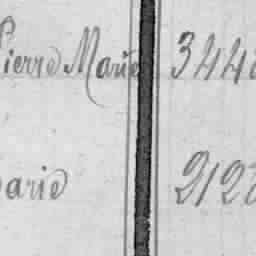 Pierre Marie 344
arie 212